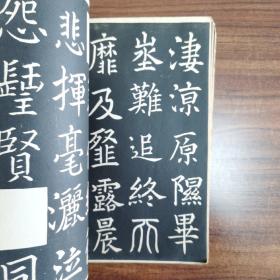 淒涼原隰畢
難追終天
靡及露晨
悲揮毫灑泣
怨賢同